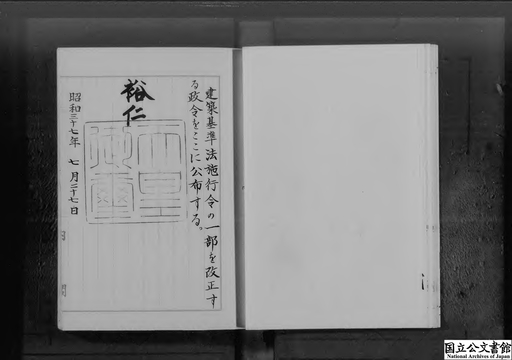 建築基準法施行令の一部を改正す
る政令をここに公布する。
裕仁
天皇
御璽
昭和三十七年 七月二十七日
国立公文書館
National Archives of Japan